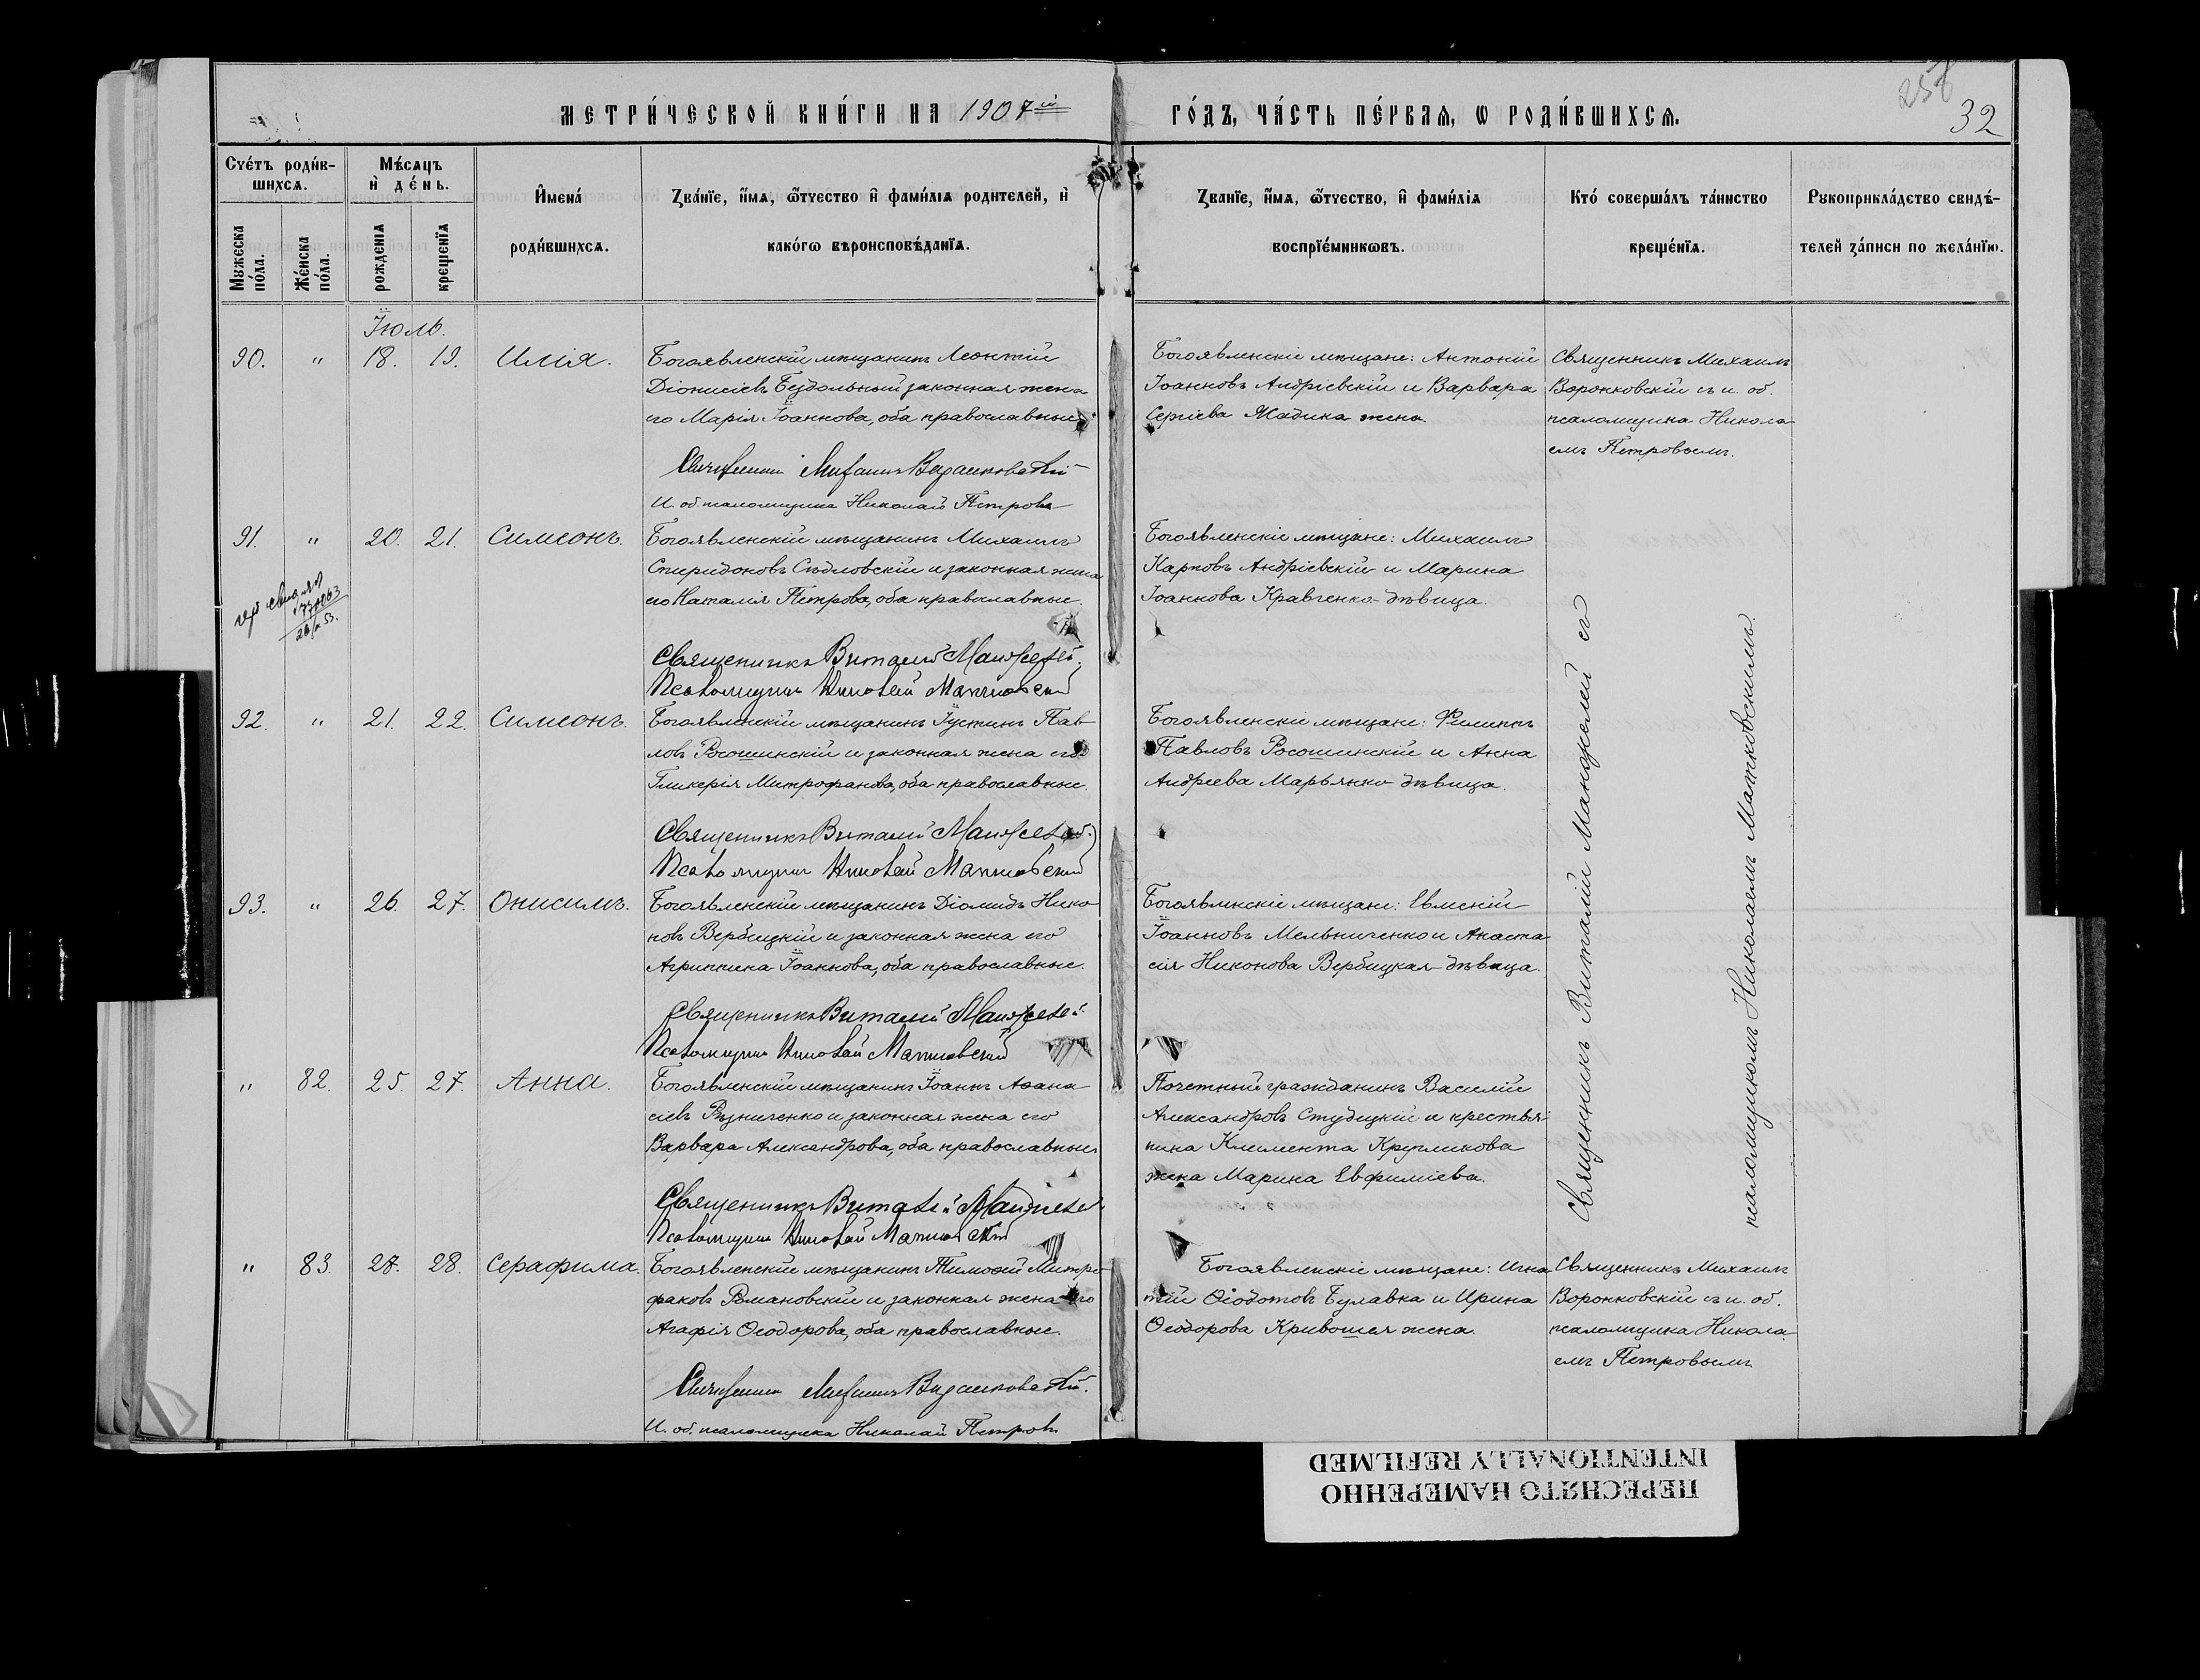 МЕТРИ́ЧЕСКОЙ КНИ́ГИ НА 1907й
ГО́ДЪ, ЧА́СТЬ ПЕ́РВАѦ, Ѡ РОДИ́ВШИХСѦ.
258
32
Сче́тъ роди́в-
шихсѧ.
Мꙋжеска
по́ла.
Же́нска
по́ла.
Мѣ́сѧцъ
и҆ де́нь.
рожденїѧ
крещенїѧ
И҆мена́
роди́вшихсѧ.
Зва́нїе, и҆́мѧ, ѻ҆́тчество и҆ фамн́лїѧ родителей, и҆
како́гѡ вѣроисповѣ́данїѧ.
Зва́нїе, и҆́мѧ, ѻ҆́тчество, и҆ фами́лїѧ
воспрїе́мникѡвъ.
Кто́ соверша́лъ та́инство
креще́нїѧ.
Рꙋкоприкла́дство свидѣ́-
телей за́писи по жела́нїю.
Іюль.
90. " 18. 19. Илія.
Богоявленскій мѣщанинъ Леонтій
Діонисіевъ Бездольный законная жена
его Марія Іоаннова, оба православные
Священникъ Михаилъ Воронковскій
И. об. псаломщика Николай Петровъ
Богоявленскіе мѣщане: Антоній
Іоанновъ Андріевскій и Варвара
Сергіева Жадика жена.
Священникъ Михаилъ
Воронковскій съ и. об.
псаломщика Никола-
емъ Петровымъ.
91. " 20. 21. Симеонъ.
26/X 53.
Богоявленскій мѣщанинъ Михаилъ
Спиридоновъ Сѣдловскій и законная жена
его Наталія Петрова, оба православные.
Священникъ Виталій Манжелей.
Псаломщикъ Николай Матковскій
Богоявленскіе мѣщане: Михаилъ
Карповъ Андріевскій и Марина
Іоаннова Кравченко-дѣвица.
92. " 21. 22. Симеонъ.
Богоявленскій мѣщанинъ Іустинъ Пав-
ловъ Росошинскій и законная жена его
Гликерія Митрофанова, оба православные.
Священникъ Виталій Манжелей.
Псаломщикъ Николай Матковскій
Богоявленскіе мѣщане: Филиппъ
Павловъ Росошинскій и Анна
Андреева Марьянко-дѣвица.
93. " 26. 27. Онисимъ.
Богоявленскій мѣщанинъ Діомидъ Нико-
новъ Вербицкій и законная жена его
Агриппина Іоаннова, оба православные.
Священникъ Виталій Манжелей.
Псаломщикъ Николай Матковскій
Богоявленскіе мѣщане: Евменій
Іоанновъ Мельниченко и Анаста-
сія Никонова Вербицкая-дѣвица.
" 82. 25. 27. Анна.
Богоявленскій мѣщанинъ Іоаннъ Аѳана-
сіевъ Рѣзниченко и законная жена его
Варвара Александрова, оба православные
Священникъ Виталій Манжелей
Псаломщикъ Николай Матковскій
Почетный гражданинъ Василій
Александровъ Студецкій и крестья-
нина Климента Крупликова
жена Марина Евфиміева.
Священникъ Виталій Манжелей съ
псаломщикомъ Николаемъ Матковскимъ.
" 83. 27. 28. Серафима.
Богоявленскій мѣщанинъ Тимоѳей Митро-
фановъ Романовскій и законная жена его
Агафія Ѳеодорова, оба православные.
Священникъ Михаилъ Воронковскій.
И. об. псаломщика Николай Петровъ
Богоявленскіе мѣщане: Игна-
тій Ѳеодотовъ Булавка и Ирина
Ѳеодорова Кривошея жена.
Священникъ Михаилъ
Воронковскій съ и. об.
псаломщика Никола-
емъ Петровымъ
ПЕРЕСНЯТО НАМЕРЕННО
INTENTIONALLY REFILMED